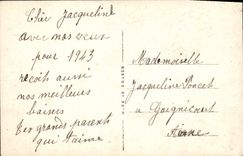 Chère Jacqueline
avec nos vœux
pour 1943
reçoit aussi
nos meilleurs
baisers
Tes grands parents
qui t'aime
Mademoiselle
Jacqueline Poncet
à Guignicourt
Aisne